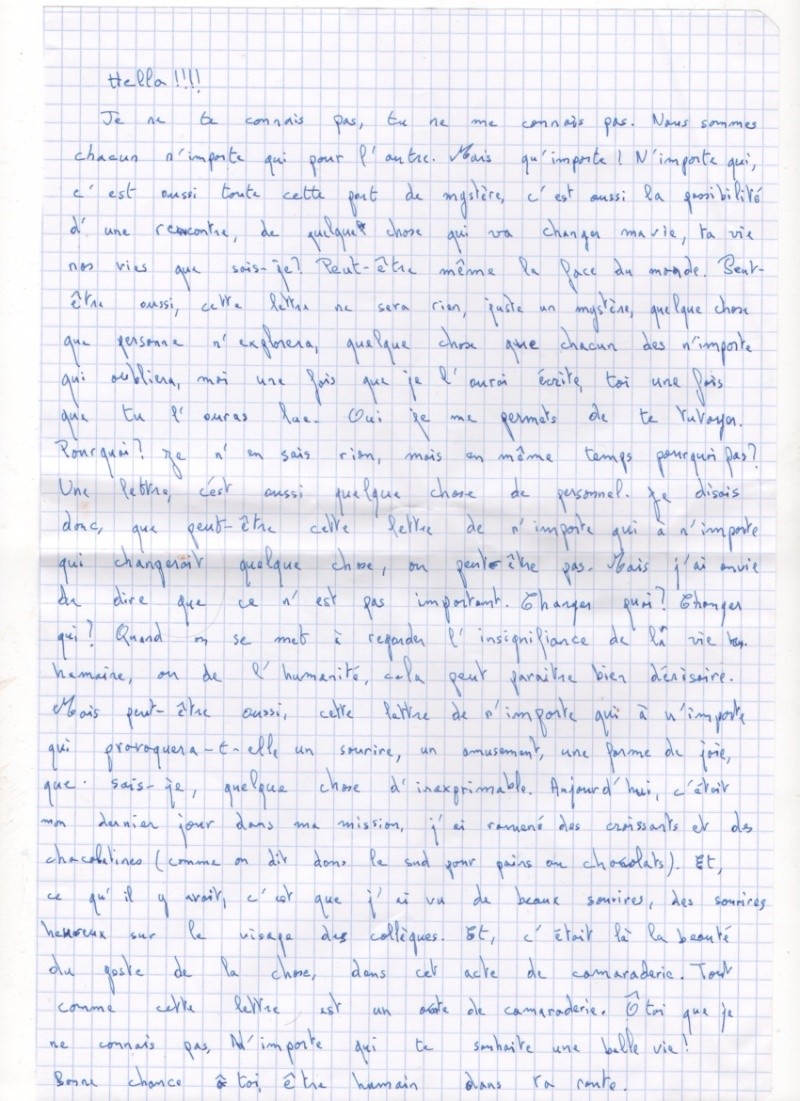 Hello !!!!
Je ne te connais pas, tu ne me connais pas. Nous sommes
chacun n'importe qui pour l'autre. Mais qu'importe ! N'importe qui,
c'est aussi toute cette part de mystère, c'est aussi la possibilité
d'une rencontre, de quelque chose qui va changer ma vie, ta vie
nos vies que sais-je? Peut-être même la face du monde. Peut-
être aussi, cette lettre ne sera rien, juste un mystère, quelque chose
que personne n'explorera, quelque chose que chacun des n'importe
qui oubliera, moi une fois que je l'aurai écrite, toi une fois
que tu l'auras lue. Oui je me permets de te tutoyer.
Pourquoi? Je n'en sais rien, mais en même temps pourquoi pas?
Une lettre, c'est aussi quelque chose de personnel. Je disais
donc, que peut-être cette lettre de n'importe qui à n'importe
qui changerait quelque chose, ou peut-être pas. Mais j'ai envie
de dire que ce n'est pas important. Changer quoi? Changer
qui? Quand on se met à regarder l'insignifiance de la vie
humaine, ou de l'humanité, cela peut paraitre bien dérisoire.
Mais peut-être aussi, cette lettre de n'importe qui à n'importe
qui provoquera-t-elle un sourire, un amusement, une forme de joie,
que sais-je, quelque chose d'inexprimable. Aujourd'hui, c'était
mon dernier jour dans ma mission, j'ai ramené des croissants et des
chocolatines (comme on dit dans le sud pour pains au chocolats). Et,
ce qu'il y avait, c'est que j'ai vu de beaux sourires, des sourires
heureux sur le visage des collègues. Et, c'était là la beauté
du geste de la chose, dans cet acte de camaraderie. Tout
comme cette lettre est un acte de camaraderie. Ô toi que je
ne connais pas, N'importe qui te souhaite une belle vie !
Bonne chance à toi, être humain dans ta route.